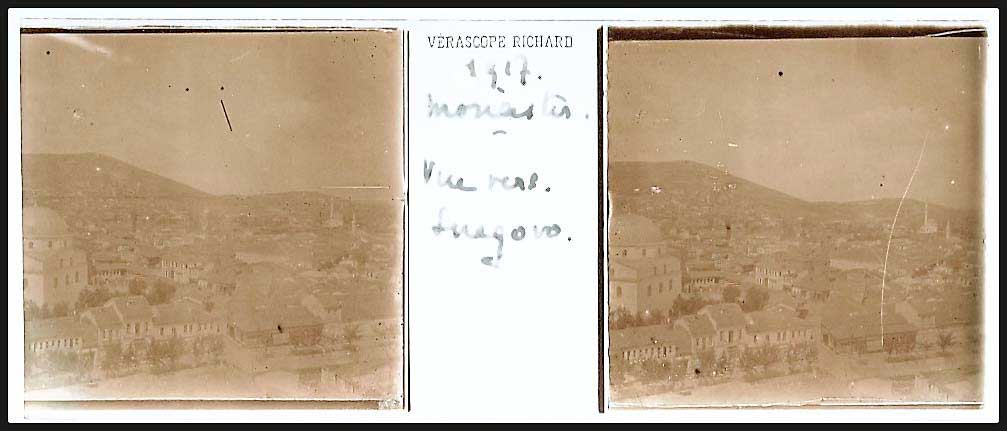 VÉRASCOPE RICHARD
1917.
Monastir.
Vue vers.